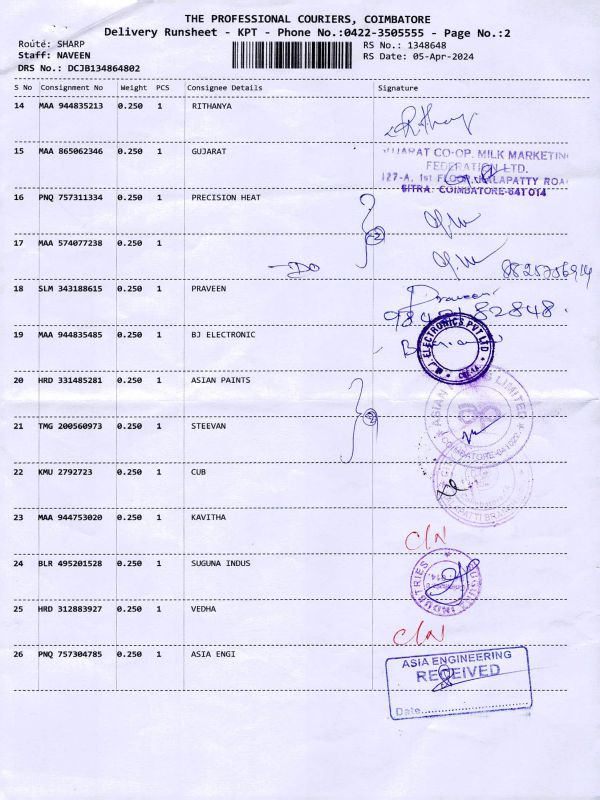 THE PROFESSIONAL COURIERS, COIMBATORE
Delivery Runsheet - KPT - Phone No.:0422-3505555 - Page No.:2
Route: SHARP
Staff: NAVEEN
DRS No.: DCJB134864802
RS No.: 1348648
RS Date: 05-Apr-2024
S No Consignment No Weight PCS Consignee Details Signature
14 MAA 944835213 0.250 1 RITHANYA
15 MAA 865062346 0.250 1 GUJARAT
GUJARAT CO-OP. MILK MARKETING
FEDERATION LTD.
127-A, 1st FLOOR, KALAPATTY ROAD
SITRA. COIMBATORE-641 014
16 PNQ 757311334 0.250 1 PRECISION HEAT
2
17 MAA 574077238 0.250 1
DO
18 SLM 343188615 0.250 1 PRAVEEN
Praveen
19 MAA 944835485 0.250 1 BJ ELECTRONIC
ELECTRONICS PVT LTD
20 HRD 331485281 0.250 1 ASIAN PAINTS
2
ASIAN LIMITED
COIMBATORE
21 TMG 200560973 0.250 1 STEEVAN
22 KMU 2792723 0.250 1 CUB
23 MAA 944753020 0.250 1 KAVITHA
C/N
24 BLR 495201528 0.250 1 SUGUNA INDUS
25 HRD 312883927 0.250 1 VEDHA
C/N
26 PNQ 757304785 0.250 1 ASIA ENGI
ASIA ENGINEERING
RECEIVED
Date